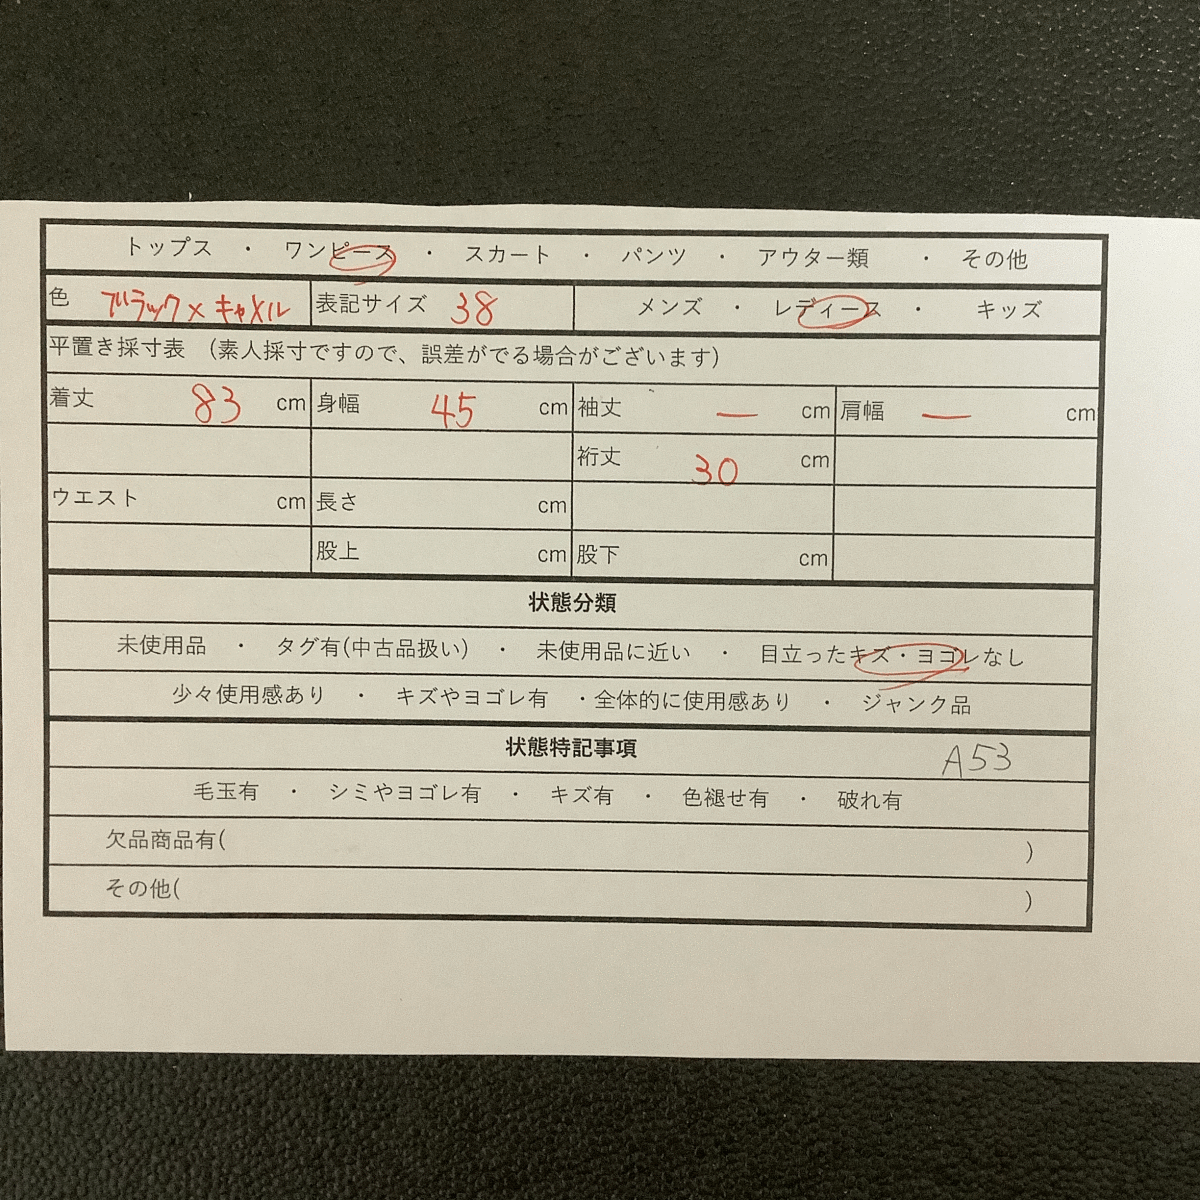 トップス ・ ワンピース ・ スカート ・ パンツ ・ アウター類 ・ その他
色 ブラック×キャメル 表記サイズ 38 メンズ ・ レディース ・ キッズ
平置き採寸表 (素人採寸ですので、誤差がでる場合がございます)
着丈 83 cm 身幅 45 cm 袖丈 — cm 肩幅 — cm
裄丈 30 cm
ウエスト cm 長さ cm
股上 cm 股下 cm
状態分類
未使用品 ・ タグ有(中古品扱い) ・ 未使用品に近い ・ 目立ったキズ・ヨゴレなし
少々使用感あり ・ キズやヨゴレ有 ・全体的に使用感あり ・ ジャンク品
状態特記事項 A53
毛玉有 ・ シミやヨゴレ有 ・ キズ有 ・ 色褪せ有 ・ 破れ有
欠品商品有( )
その他( )